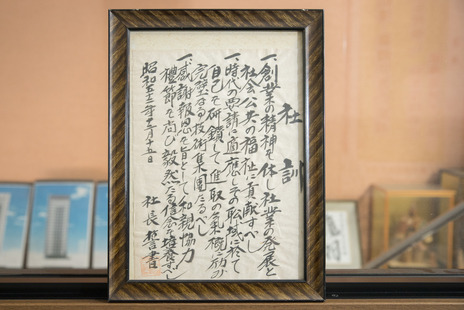 社訓
一、創業の精神を体し社業の発展と
社会公共の福祉に貢献すべし
一、時代の要請に適応しその職域に於て
自己を研鑽して進取の気概に励み
完璧なる技術集団たるべし
一、感謝報恩を旨として和親協力
礼節を尚び毅然たる信念を培養すべし
昭和五十二年十二月十五日
社長 書